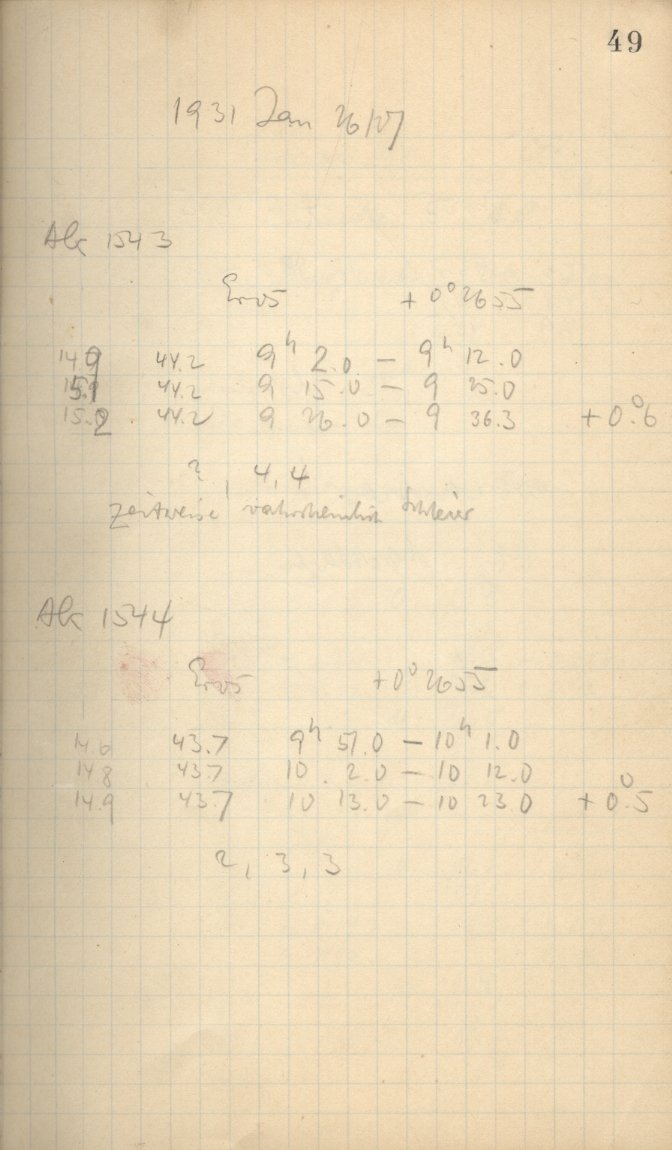 49
1931 Jan 26/27
Ak 1543
Eros +0° 2655
14.9 44.2 9ʰ 2.0 – 9ʰ 12.0
15.1 44.2 9 15.0 – 9 25.0
15.2 44.2 9 26.0 – 9 36.3 +0°.6
2, 4, 4
zeitweise wahrscheinlich Schleier
Ak 1544
Eros +0° 2655
14.6 43.7 9ʰ 51.0 – 10ʰ 1.0
14.8 43.7 10 2.0 – 10 12.0
14.9 43.7 10 13.0 – 10 23.0 +0°.5
2, 3, 3